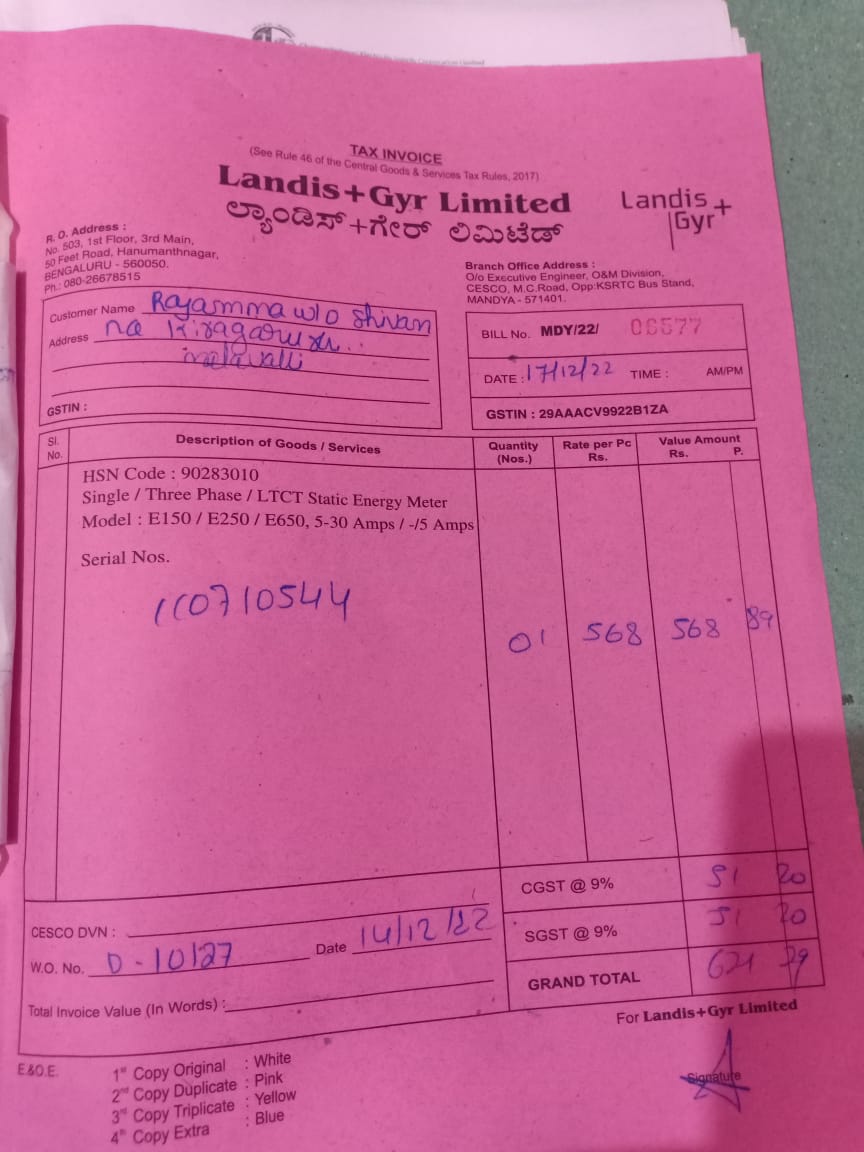 TAX INVOICE
(See Rule 46 of the Central Goods & Services Tax Rules, 2017)
Landis+Gyr Limited
ಲ್ಯಾಂಡಿಸ್+ಗೇರ್ ಲಿಮಿಟೆಡ್
Landis+
Gyr
R. O. Address :
No. 503, 1st Floor, 3rd Main,
50 Feet Road, Hanumanthnagar,
BENGALURU - 560050.
Ph.: 080-26678515
Branch Office Address :
O/o Executive Engineer, O&M Division,
CESCO, M.C.Road, Opp:KSRTC Bus Stand,
MANDYA - 571401.
Customer Name Rajamma w/o Shivan
Address na
malavalli
GSTIN :
BILL No. MDY/22/ 06577
DATE : 17/12/22 TIME : AM/PM
GSTIN : 29AAACV9922B1ZA
Sl. No. Description of Goods / Services Quantity (Nos.) Rate per Pc Rs. Value Amount Rs. P.
HSN Code : 90283010
Single / Three Phase / LTCT Static Energy Meter
Model : E150 / E250 / E650, 5-30 Amps / -/5 Amps
Serial Nos.
110710544 01 568 568 89
CGST @ 9% 51 20
SGST @ 9% 51 20
GRAND TOTAL 671 29
CESCO DVN :
W.O. No. D-10127 Date 14/12/22
Total Invoice Value (In Words) :
For Landis+Gyr Limited
Signature
E&O.E.
1st Copy Original : White
2nd Copy Duplicate : Pink
3rd Copy Triplicate : Yellow
4th Copy Extra : Blue